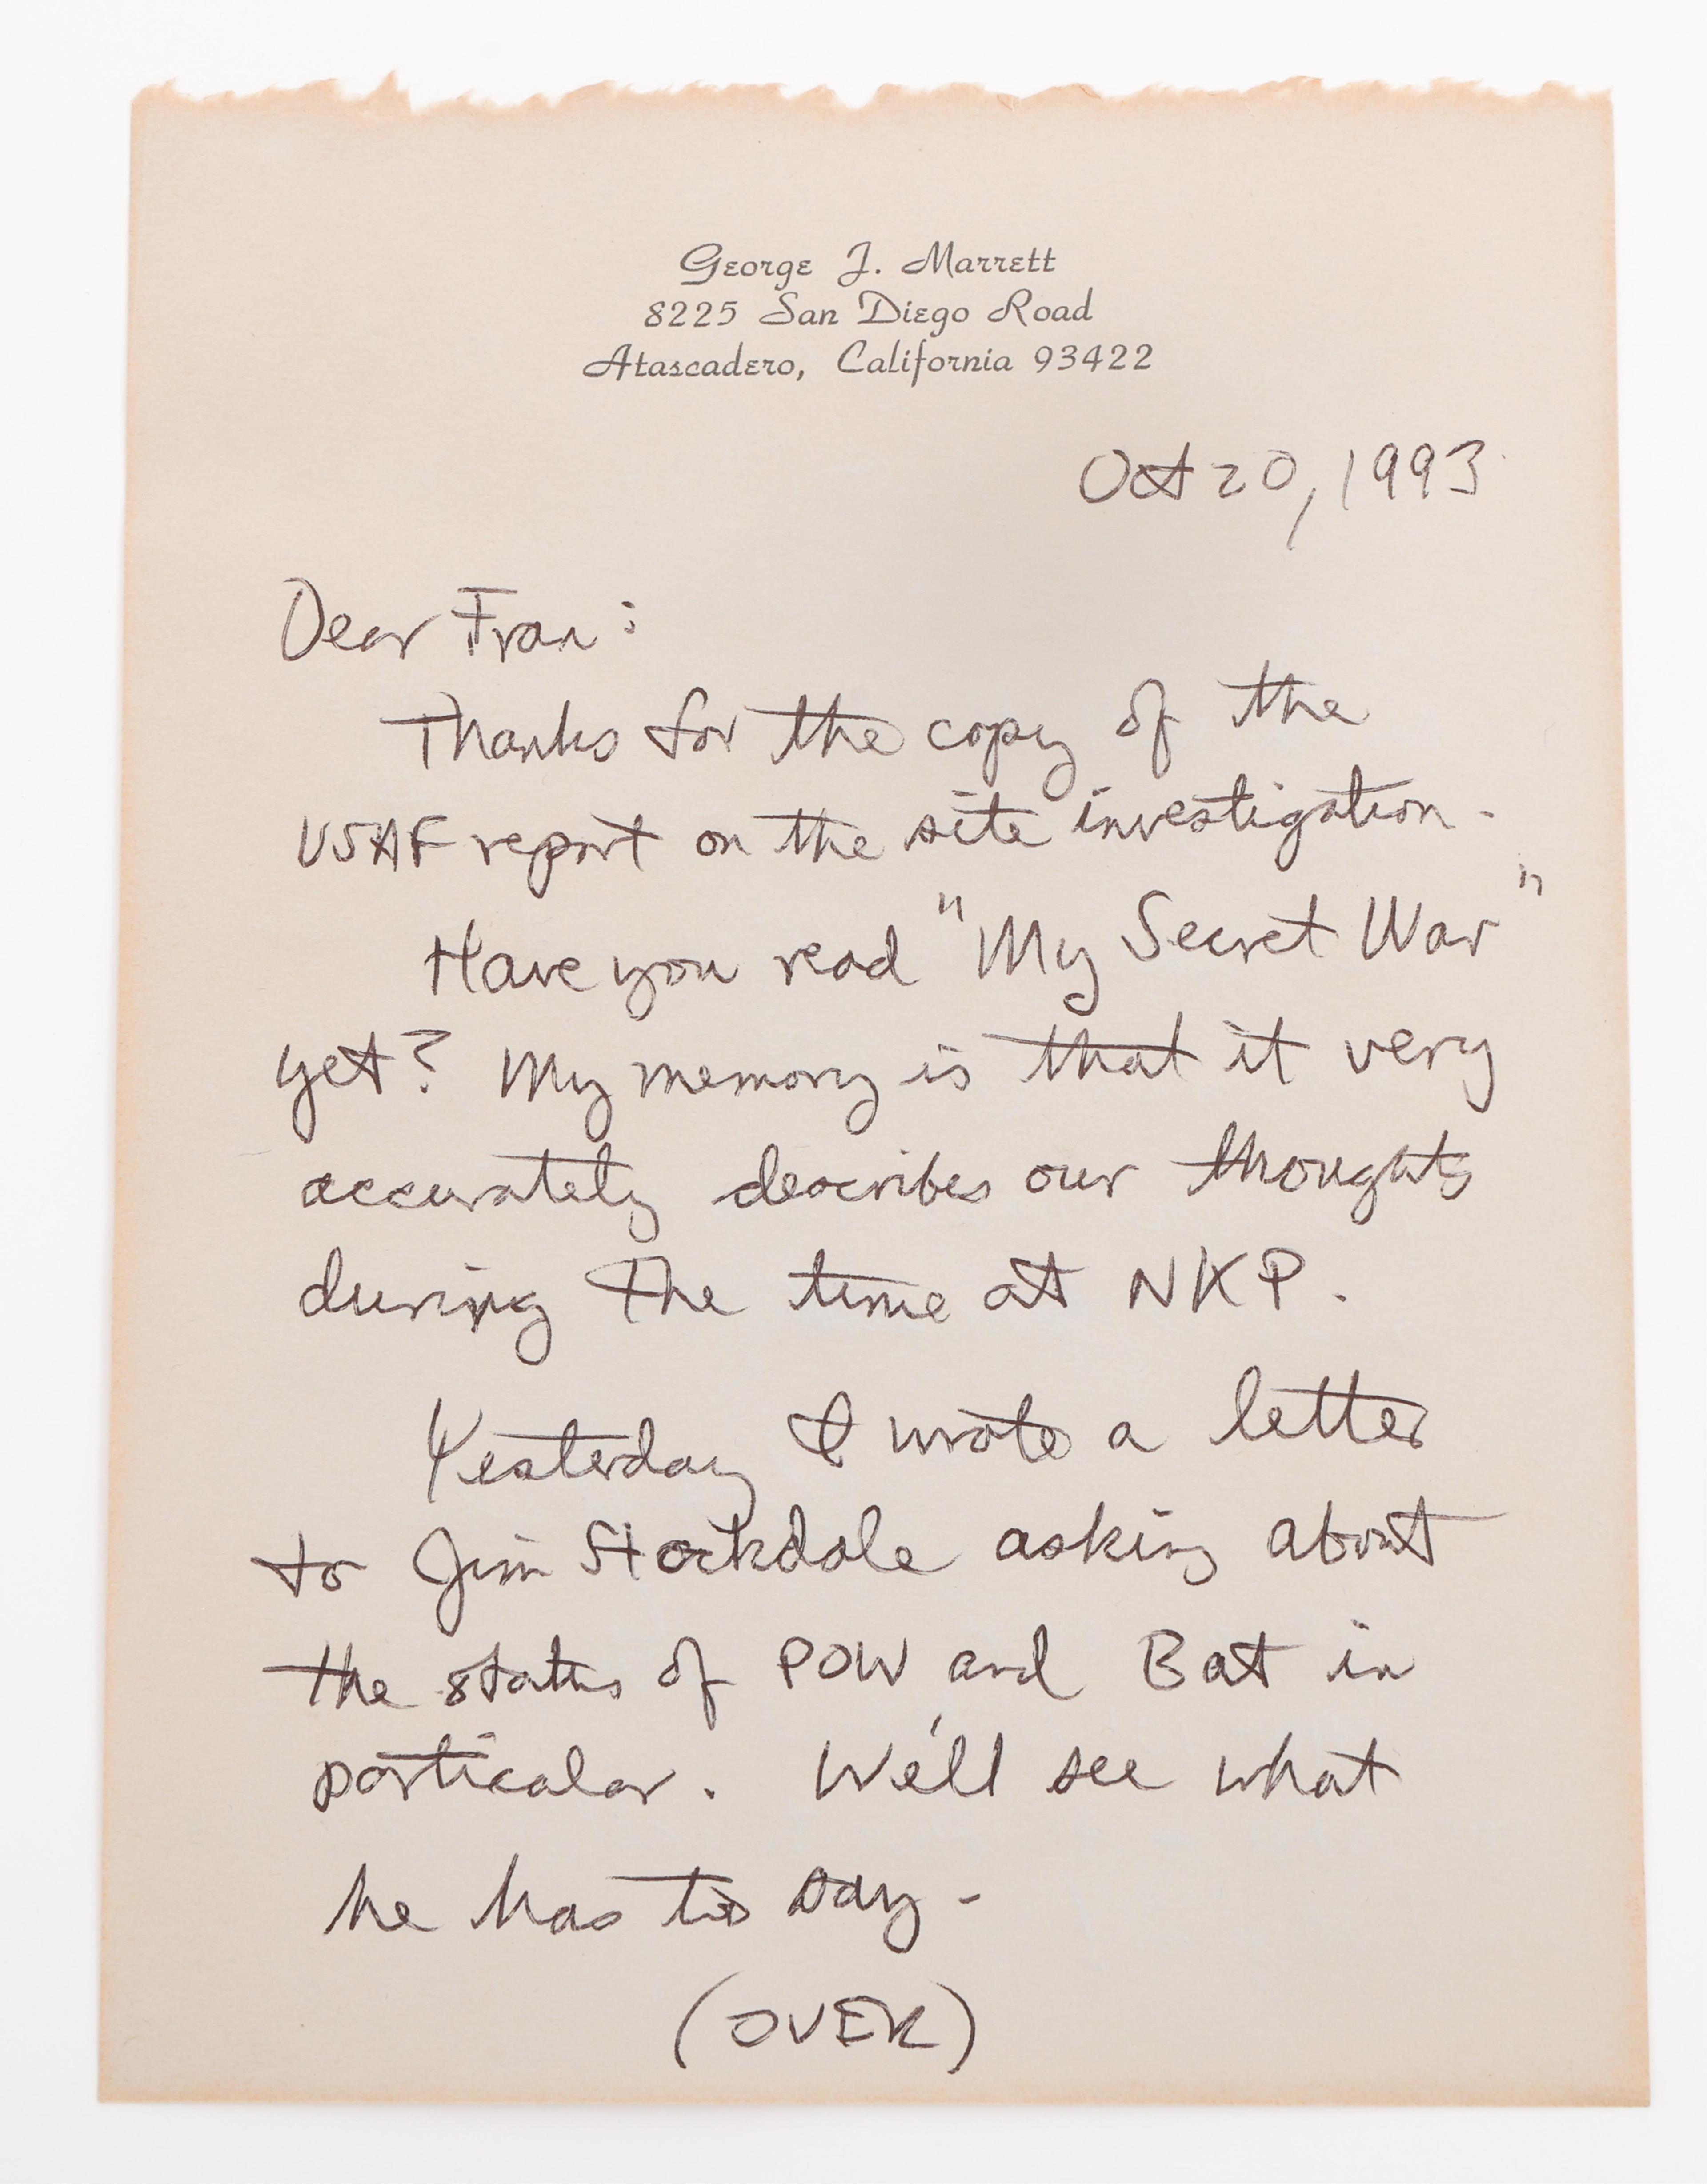 George J. Marrett
8225 San Diego Road
Atascadero, California 93422
Oct 20, 1993
Dear Fran:
Thanks for the copy of the
USAF report on the site investigation.
Have you read "My Secret War"
yet? My memory is that it very
accurately describes our thoughts
during the time at NKP.
Yesterday I wrote a letter
to Jim Stockdale asking about
the status of POW and Bat in
particular. We'll see what
he has to say -
(OVER)